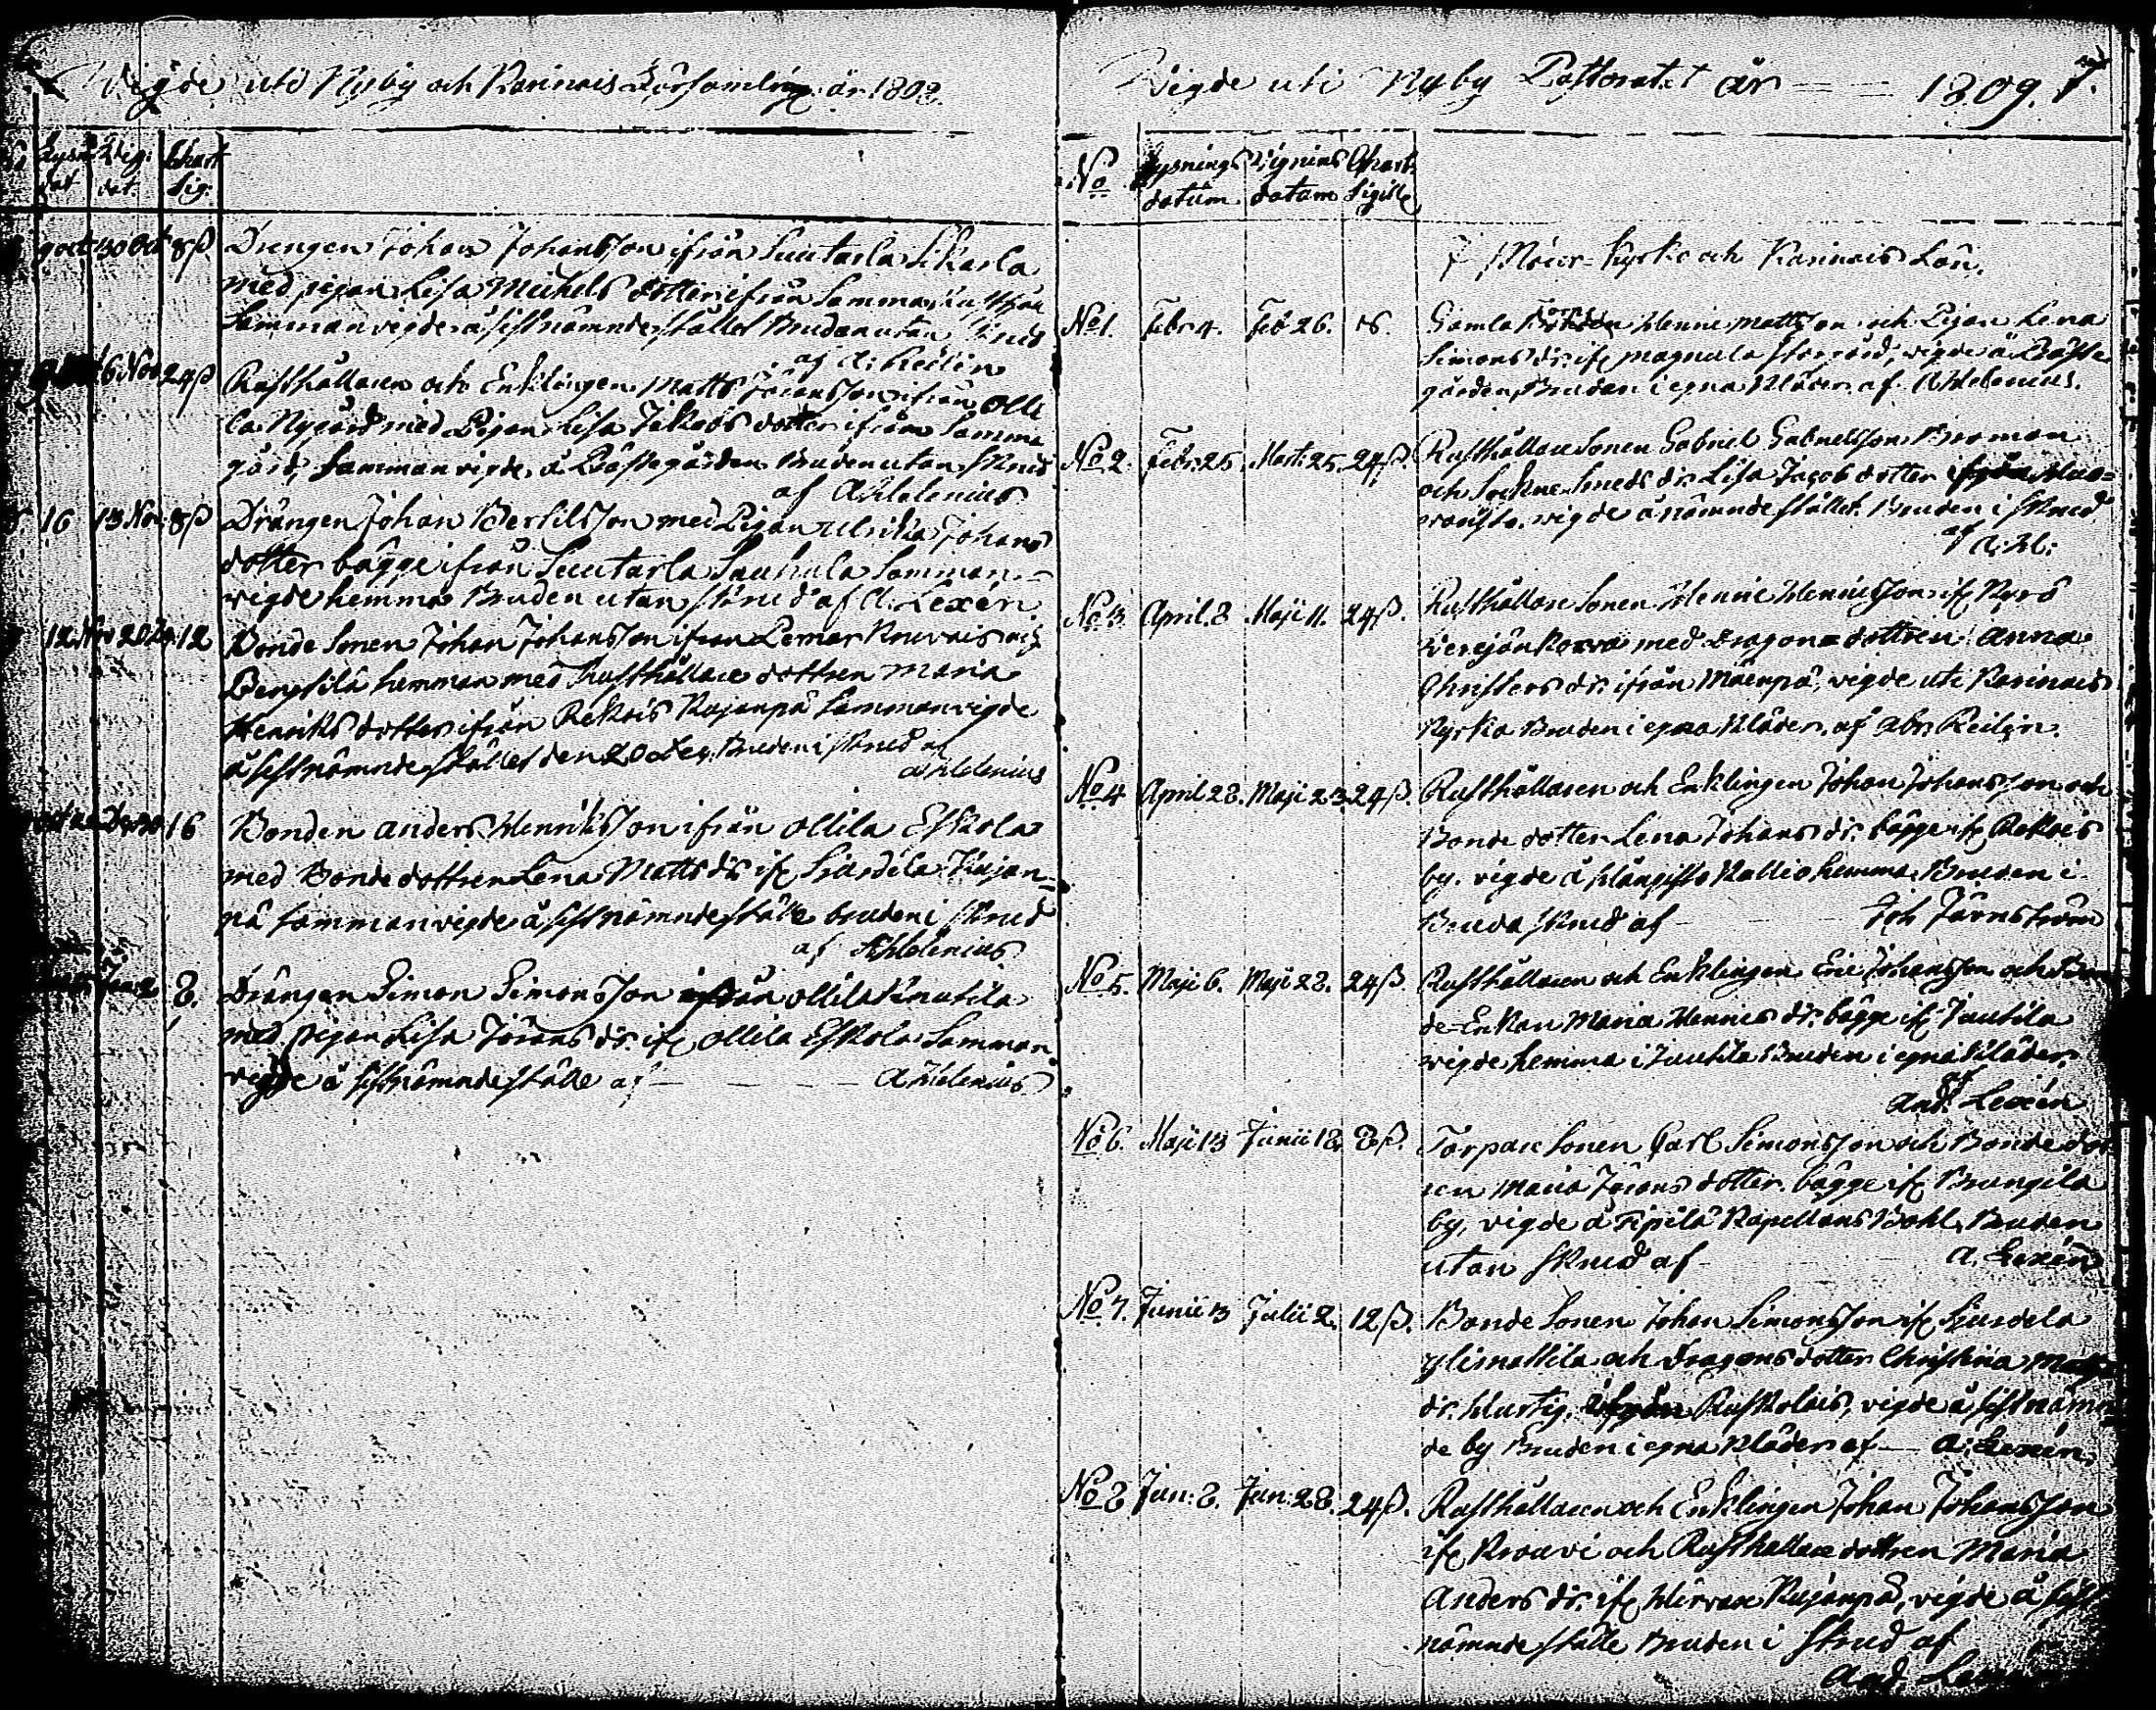 Vigde uti Nyby och Karinais Församling år 1808.
Lysn. Vig. Chart.
dat dat Sig:
9 oct 30 Oct 8ß. Drengen Johan Johansson ifrån Suutarla Sikarla
med pigan Lisa Michels dotter ifrån Samma
Sammanvigde å sistnämnde stället Bruden utan skrud
af A: Reilin
6 Nov 24ß Rusthållaren och Enklingen Matts Jöransson ifrån Olli
la Nygård med Pigan Lisa Jakobs dotter ifrån Samma
gård, Sammanvigde å Prästegården Bruden utan skrud
af A Helenius
16 13 Nov. 8ß Drängen Johan Bertilsson med Pigan Ulrika Johans
dotter bägge ifrån Suutarla Sauhula Samman-
vigde hemma Bruden utan skrud af A. Lexén
12 Nov 20 12 Bonde Sonen Johan Johansson ifrån Lemar Kouvais och
Bengtilä hemman med Rusthållare dottren Maria
Henriks dotter ifrån Rekois Rajanpä Sammanvigde
å sistnämnde stället den 20 Dec, Bruden i skrud af
A Helenius
16 Bonden Anders Henriksson ifrån Ollila Eskola
med Bondedottren Lena Matts dr. ifr. Siurdela Kujan-
pä Sammanvigde å sistnämnde ställe bruden i skrud
af A Helenius
8. Drängen Simon Simonsson ifrån Ollila Knutila
med pigan Lisa Jörans dr. ifr. Ollila Eskola Samman
vigde å sistnämnde ställe af — A Helenius
Vigde uti Nyby Pastoratet år — 1809.
No Lysnings Vignings Chart.
datum datum Sigill
Moder-Kyrko och Karinais Län.
No 1. Febr 4. Feb 26. Gamla Henric Mattsson och Pigan Lena
Simons dr. ifr. Magnula storgård, vigde å Präste
gården, Bruden i egna kläder af A Helenius.
No 2. Febr. 25. Mart. 25. 24ß. Rusthållare Sonen Gabriel Gabrielsson Broman
och Sockne Smeds dr. Lisa Jacob dotter
vigde å nämnde stället. Bruden i skrud
af A. H:
No 3. April. 8 Maji 11. 24ß. Rusthållare Sonen Henric Henricsson ifr. Kyrö
med Dragone dottren Anna
Christers dr. ifrån Mäenpä, vigde uti Karinais
Kyrka Bruden i egna kläder, af Abr. Reilin.
No 4 April 28. Maji 23 24ß. Rusthållaren och Enklingen Johan Johansson och
Bonde dotter Lena Johans dr. bägge ifr. Rekois
by. vigde å Kallio hemma. Bruden i
Bruda skrud af — Joh Järnström
No 5. Maji 6. Maji 28. 24ß. Rusthållaren och Enklingen Eric Johansson och Bon
de-Enkan Maria Henrics dr. bägge ifr. Juutila
vigde hemma i Juutila Bruden i egna kläder.
af
And. Lexén
No 6. Maji 13 Junii 18. 8ß. Torpare Sonen Carl Simonsson och Bonde dot
ren Maria Jörans dotter. bägge ifr. Brungila
by, vigde å Pipilä Kapellans Bohl, Bruden
utan skrud af — A. Lexén
No 7. Junii 13 Julii 2. 12ß. Bonde Sonen Johan Simonsson ifr. Siurdela
Ylimattila och Dragons dotter Christina
dr. Hurtig, ifrån Ruskolais, vigde å sistnämn
de by Bruden i egna kläder af — A: Lexén.
No 8 Jun: 8. Jun: 28. 24ß. Rusthållaren och Enklingen Johan Johansson
ifr. Krouvi och Rusthållare dottren Maria
Anders dr. ifr. Hirvas Kujanpä, vigde å sist
nämnde ställe Bruden i skrud af
And. Lexén